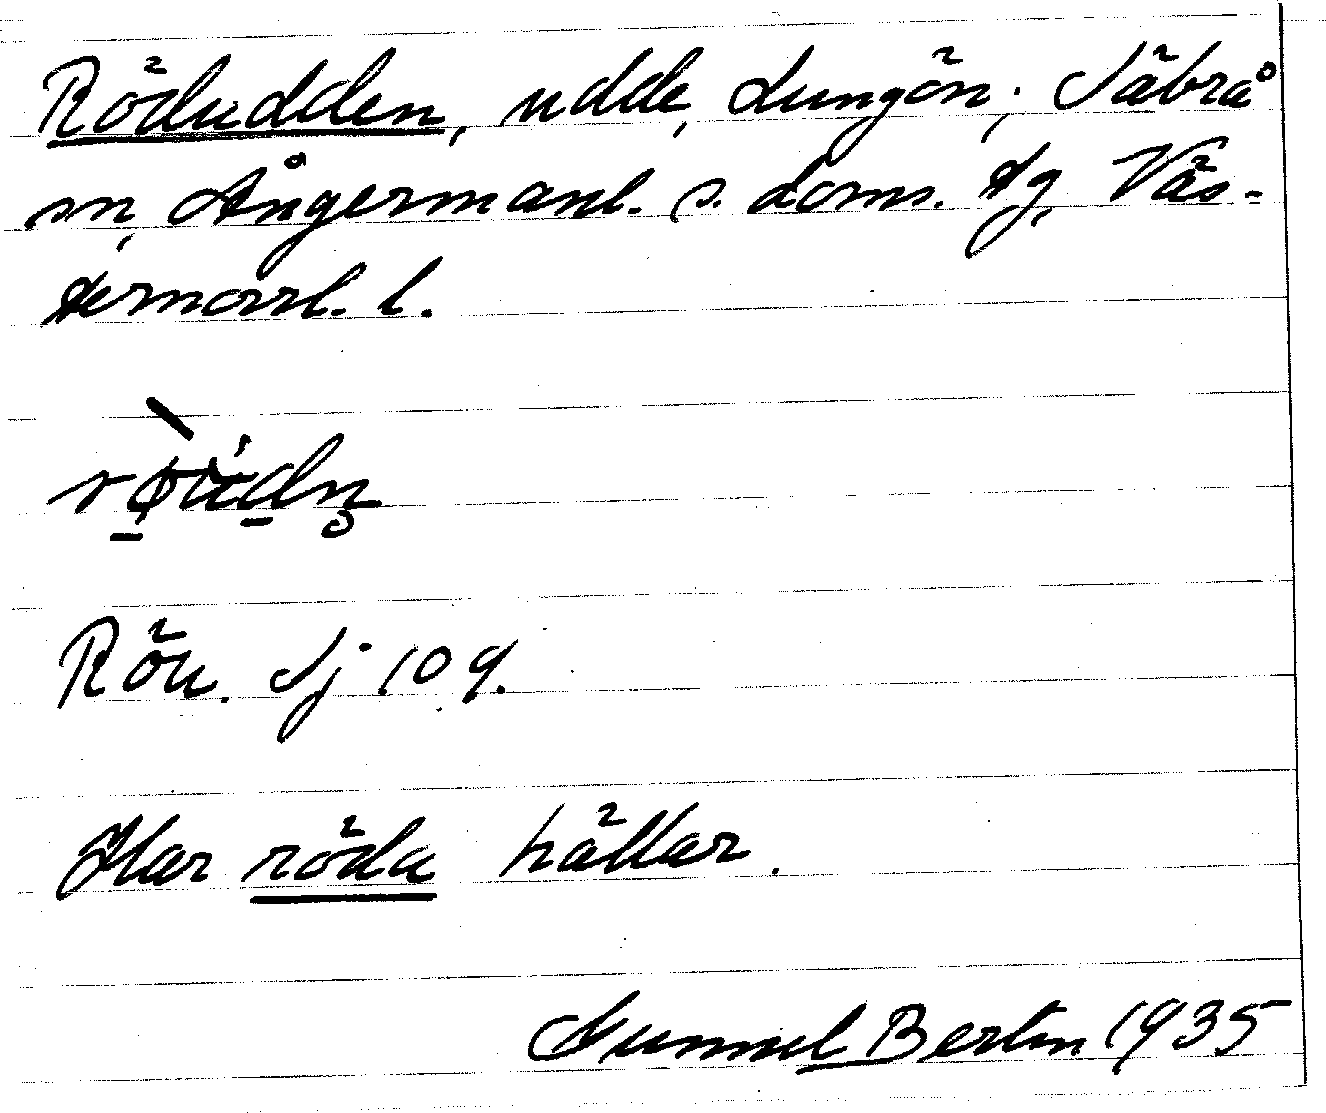 Rödudden, udde, Lungön; Säbrå
sn, Ångermanl. s. doms. tg, Väs-
ternorrl. l.
Röu. Sj 109.
Har röda hällar.
Gunnel Bertin 1935